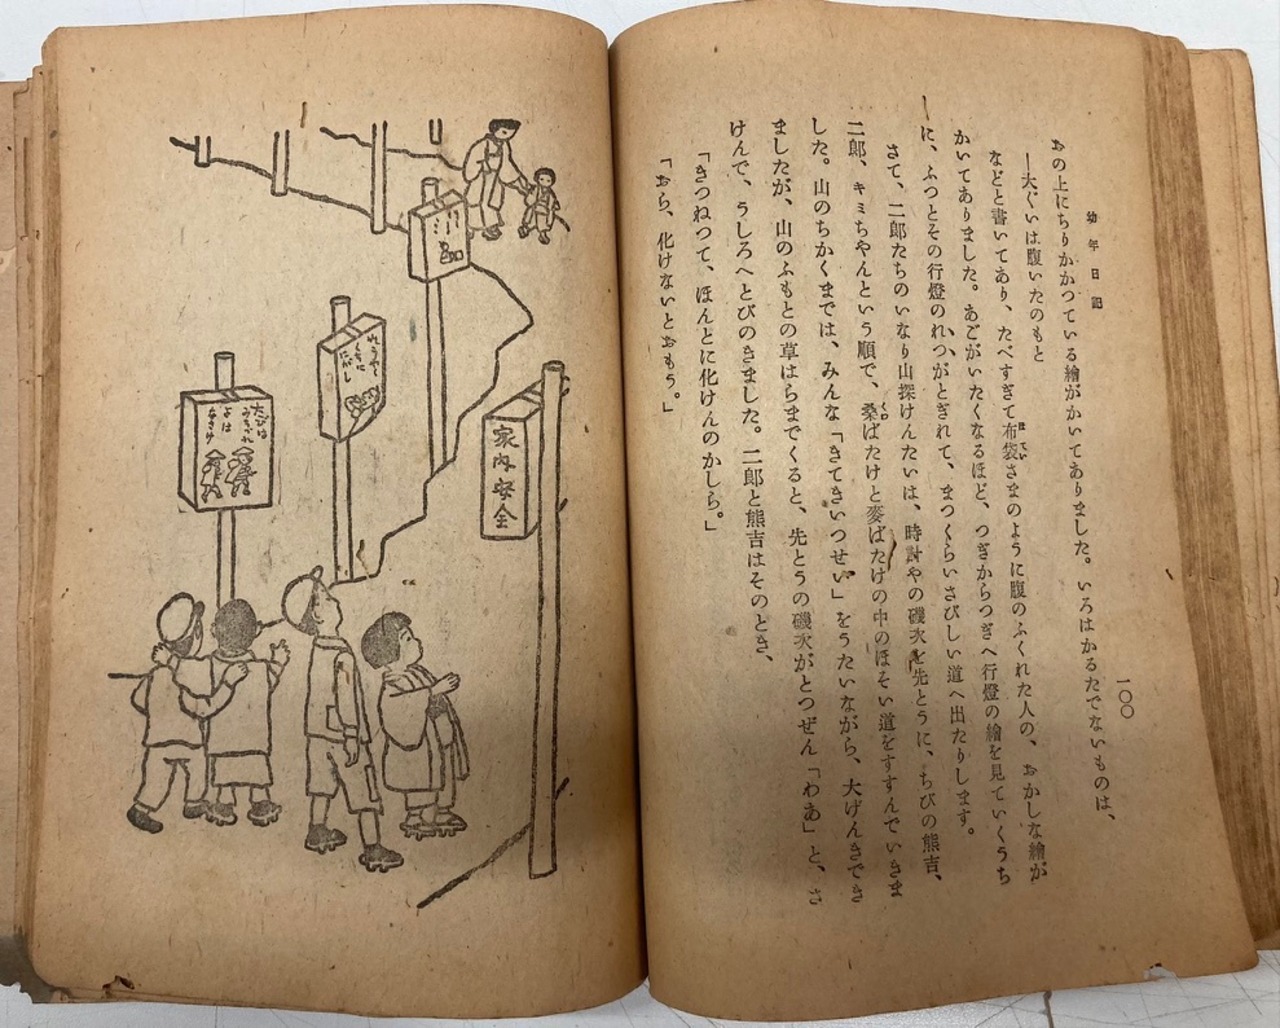 幼年日記
一〇〇
おの上にちりかかつている繪がかいてありました。いろはかるたでないものは、
―大ぐいは腹いたのもと
などと書いてあり、たべすぎて布袋さまのように腹のふくれた人の、おかしな繪が
かいてありました。あごがいたくなるほど、つぎからつぎへ行燈の繪を見ていくうち
に、ふつとその行燈のれつがとぎれて、まつくらいさびしい道へ出たりします。
さて、二郎たちのいなり山探けんたいは、時計やの磯次を先とうに、ちびの熊吉、
二郎、キミちやんという順で、桑ばたけと麥ばたけの中のほそい道をすすんでいきま
した。山のちかくまでは、みんな「きてきいつせい」をうたいながら、大げんきでき
ましたが、山のふもとの草はらまでくると、先とうの磯次がとつぜん「わあ」と、さ
けんで、うしろへとびのきました。二郎と熊吉はそのとき、
「きつねつて、ほんとに化けんのかしら。」
「おら、化けないとおもう。」
家内安全